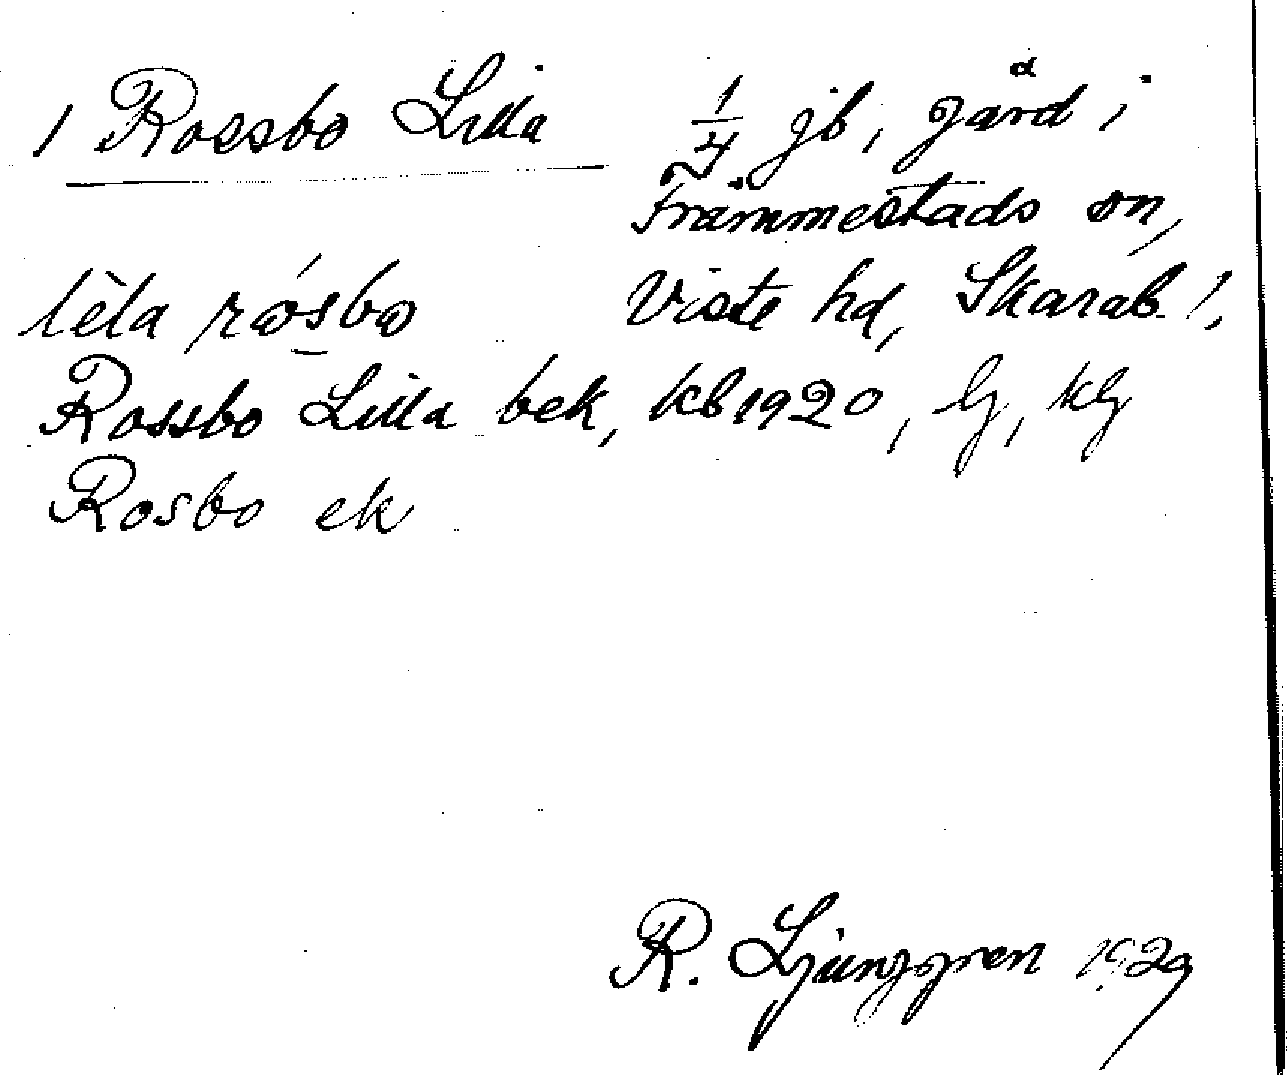 1 Rossbo Lilla
1/4 jb, gård i
Främmestads sn,
Viste hd, Skarab. l.
lèla rósbo
Rossbo Lilla bek, kb 1920, lg, klg
Rosbo ek
R. Ljunggren 1929